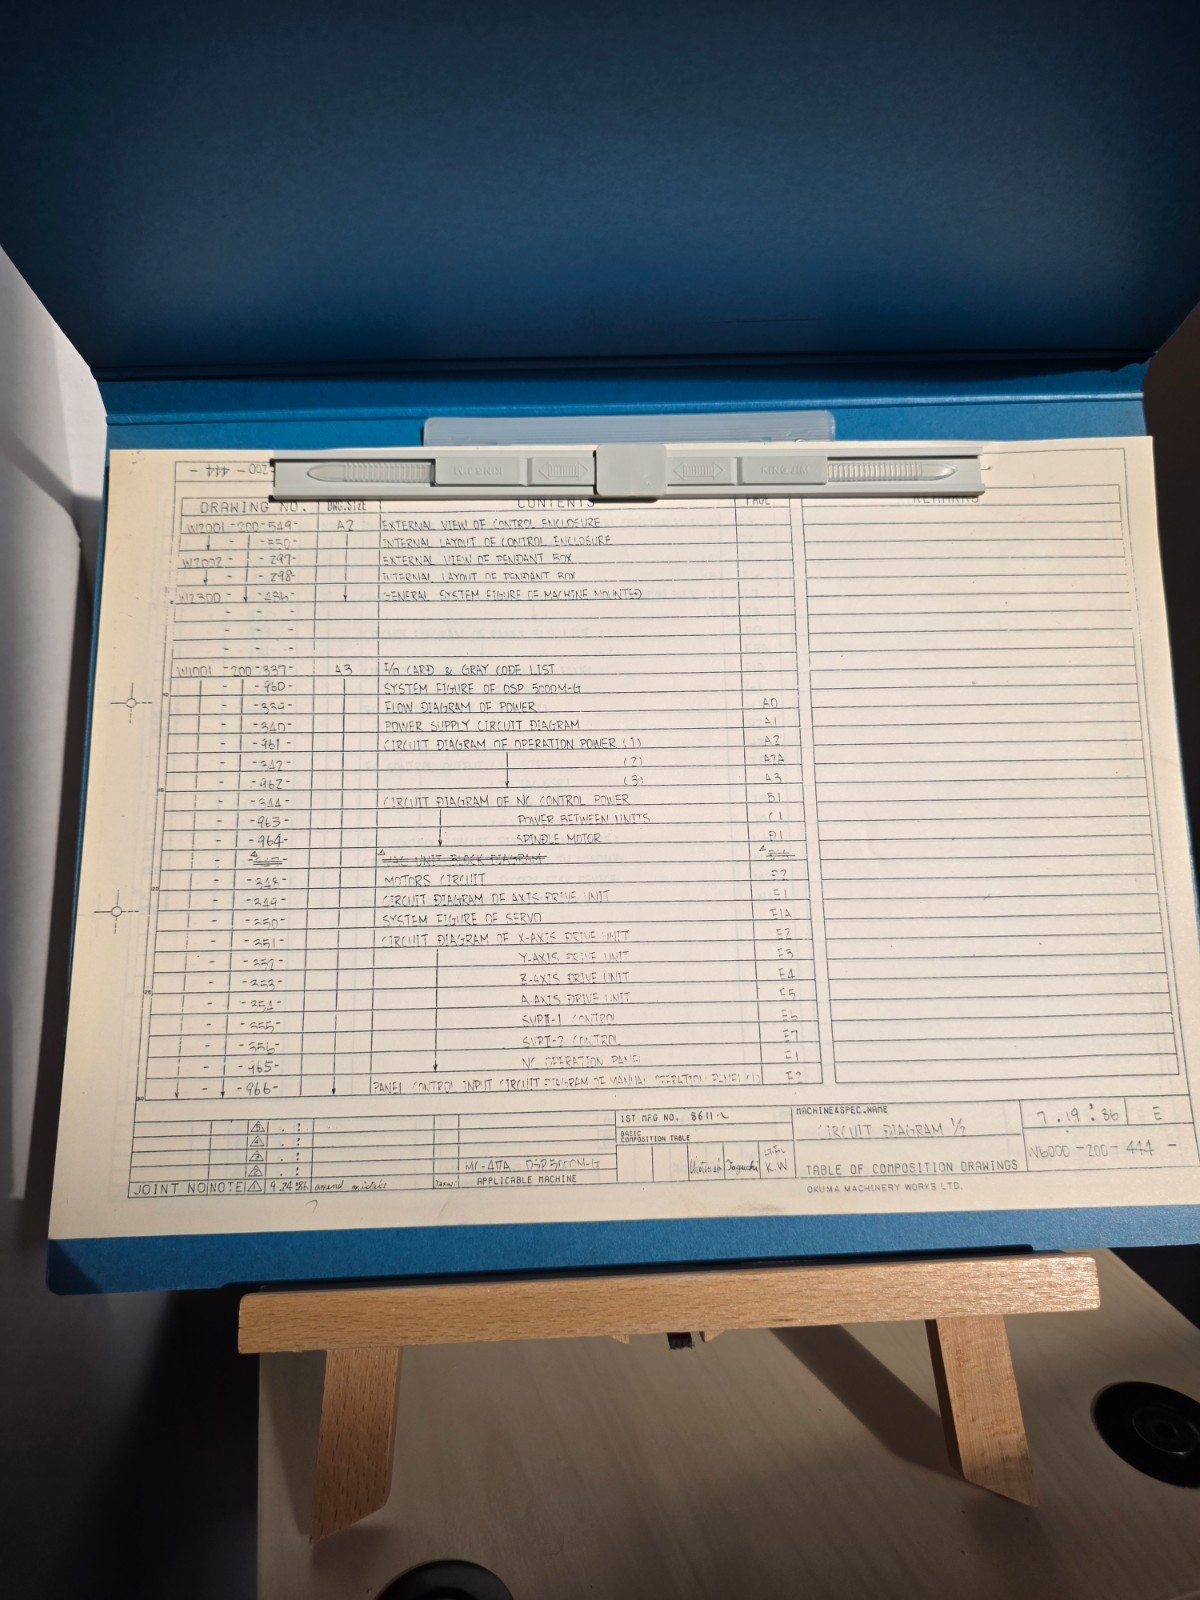 - 444 - 200
KING JIM KING JIM
DRAWING NO. DWG.SIZE CONTENTS PAGE REMARKS
W2001 -200-549- A2 EXTERNAL VIEW OF CONTROL ENCLOSURE
- -550- INTERNAL LAYOUT OF CONTROL ENCLOSURE
W2002 - -297- EXTERNAL VIEW OF PENDANT BOX
- -298- INTERNAL LAYOUT OF PENDANT BOX
W2300 - GENERAL SYSTEM FIGURE OF MACHINE MOUNTED
- - -
- - -
- - -
W1001 -200-337- A3 I/O CARD & GRAY CODE LIST
- -960- SYSTEM FIGURE OF DSP 5000M-G
- -339- FLOW DIAGRAM OF POWER A0
- -340- POWER SUPPLY CIRCUIT DIAGRAM A1
- -961- CIRCUIT DIAGRAM OF OPERATION POWER (1) A2
- -342- (2) A2A
- -962- (3) A3
- -344- CIRCUIT DIAGRAM OF NC CONTROL POWER B1
- -963- POWER BETWEEN UNITS C1
- -964- SPINDLE MOTOR D1
- UNIT BLOCK DIAGRAM
- -348- MOTORS CIRCUIT D2
- -349- CIRCUIT DIAGRAM OF AXIS DRIVE UNIT E1
- -350- SYSTEM FIGURE OF SERVO E1A
- -351- CIRCUIT DIAGRAM OF X-AXIS DRIVE UNIT E2
- -352- Y-AXIS DRIVE UNIT E3
- -353- Z-AXIS DRIVE UNIT E4
- -354- A-AXIS DRIVE UNIT E5
- -355- SVPII-1 CONTROL E6
- -356- SVPII-2 CONTROL E7
- -965- NC OPERATION PANEL F1
- -966- PANEL CONTROL INPUT CIRCUIT DIAGRAM OF MANUAL OPERATION PANEL (1) F2
1ST MFG NO. 8611~ MACHINE&SPEC.NAME 7.19.'86 E
BASIC COMPOSITION TABLE CIRCUIT DIAGRAM 1/2
5 . :
4 . :
3 . :
2 . : DSP5000M-G Taguchi K.W W6000 -200 -444 -
APPLICABLE MACHINE TABLE OF COMPOSITION DRAWINGS
JOINT NO NOTE 1 9.24.'86 amend
OKUMA MACHINERY WORKS LTD.